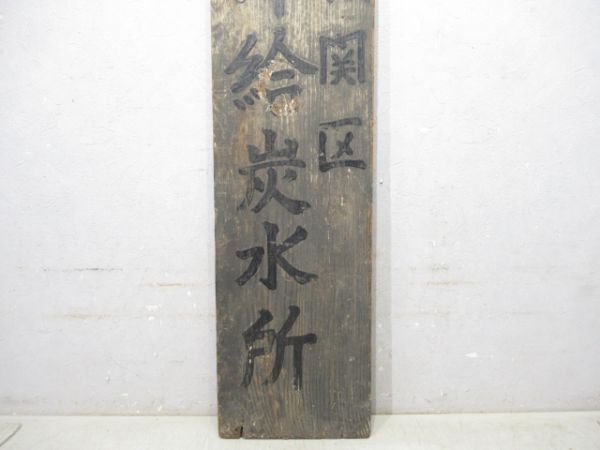 関区
給炭水所